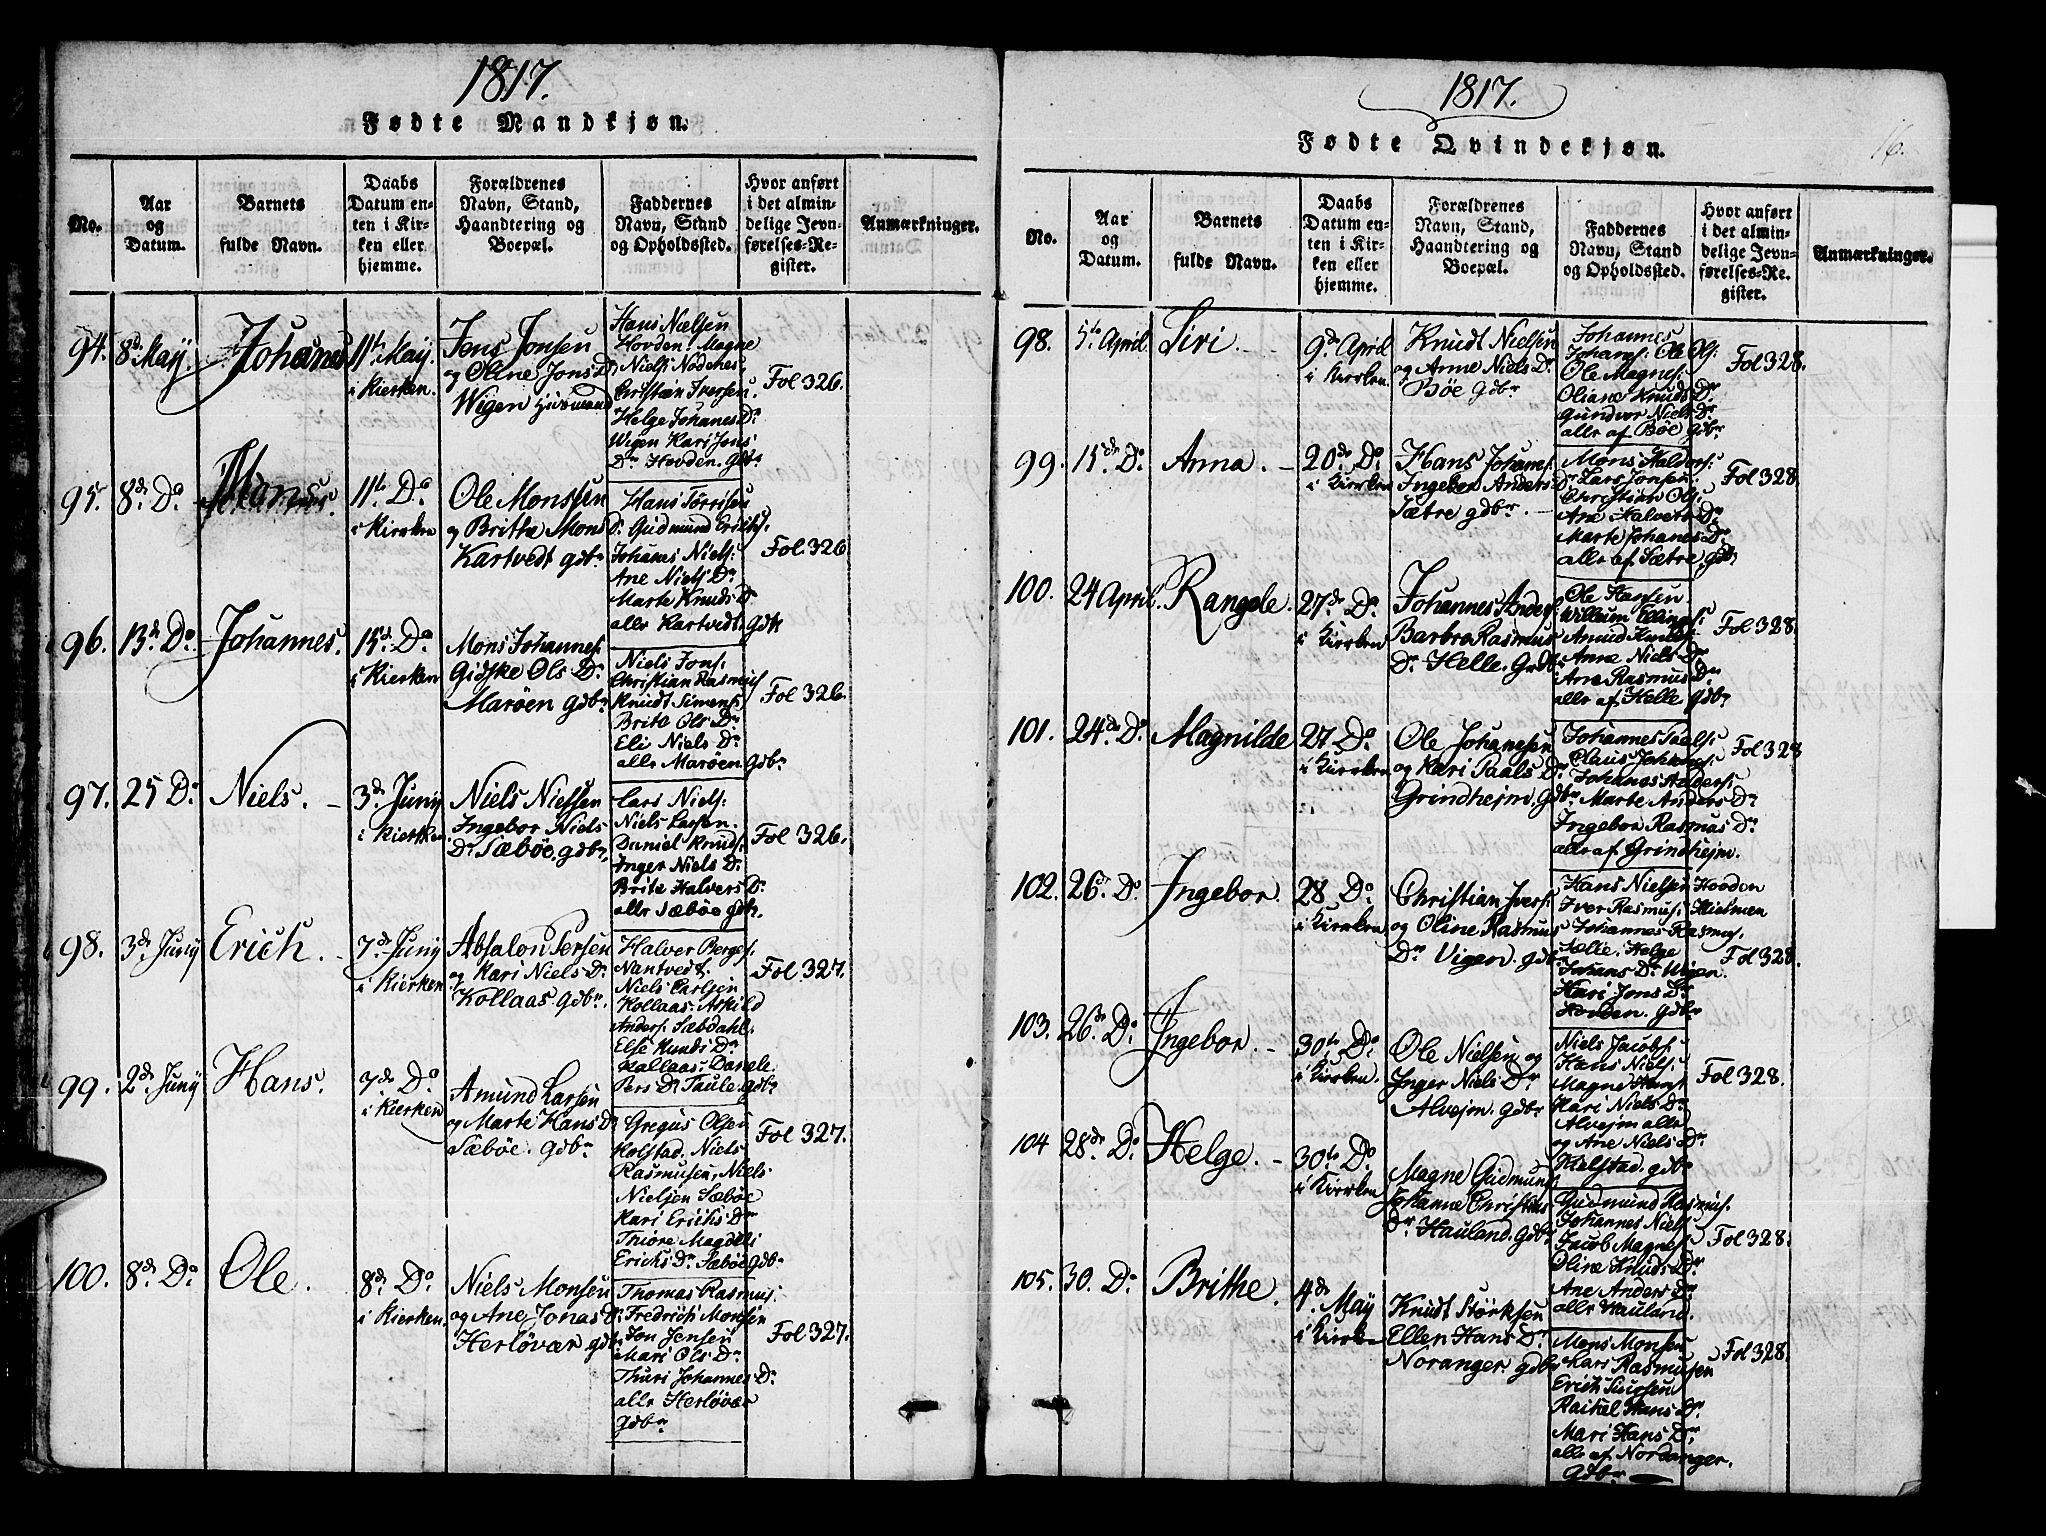 1817.
Fødte Mandkjøn.
No.
Aar
og
Datum.
Barnets
fulde Navn.
Daabs
Datum en-
ten i Kir-
ken eller
hjemme.
Forældrenes
Navn, Stand,
Haandtering og
Boepæl.
Faddernes
Navn, Stand
og Opholdssted.
Hvor anført
i det almin-
delige Jevn-
førelses-Re-
gister.
Anmærkninger.
94. 8de May. Johanes 11te May
i Kierken.
Jens Jonsen
og Oline Jons Dr
Wigen Huusmand
Hans Nielsen
Hovden. Magne
Niels: Nødenes.
Christian Iversen.
Helge Johanes Dr
Wigen Kari Jons
Dr Hovden. gdbr
Fol 326.
95. 8de Do Monus. 11te Do
i Kierken
Ole Monssen
og Britta Mons Dr
Kartvedt gdbr
Hans Torrisen
Gudmund Erichs.
Johanes Niels:
Ane Niels Dr
Marte Knuds Dr
alle Kartvedt. gdbr
Fol. 326
96. 13de Do Johannes. 15de Do
i Kierken
Mons Johannes:
Gidske Ols Dr
Marøen gdbr
Niels Jons:
Christian Rasmus
Knudt Simens:
Brite Ols Dr
Eli Niels Dr
alle Marøen gdbr
Fol 326.
97. 25 Do Niels. 3de Juny
i Kierken
Niels Nielsen
Ingebor Niels
Dr Sæbøe. gdbr.
Lars Niels:
Niels Larsen.
Daniel Knuds:
Inger Niels Dr
Brite Halvers Dr
alle Sæbøe gdbr.
Fol 326.
98. 3de Juny Erich. 7de Juny
i Kierken
Absalon Persen
og Kari Niels Dr
Kollaas gdbr.
Halver Berges:
Nantvedt.
Niels Carlsen
Kollaas. Askild
Anders: Sæbdahl.
Else Knuds Dr
Kollaas. Danele
Pers Dr Taule. gdbr
Fol 327.
99. 2de Juny Hans. 7de Do
i Kierken
Amund Larsen
og Marte Hans Dr
Sæbøe. gdbr
Gregus Olsen
Kolstad. Niels
Rasmusen, Niels
Nielsen Sæbøe
Kari Erichs Dr
Thore Magdeli
Erichs Dr Sæbøe gdbr
Fol 327.
100. 8de Do Ole. 8de Do
i Kierken.
Niels Monsen
og Ane Jonas Dr
Herløvær gdbr
Thomas Rasmus:
Fredrich Monsen
Jon Jensen
Mari Ols Dr
Thuri Johannes Dr
alle Herløvær
gdbr
Fol 327.
1817.
16.
Fødte Qvindekjøn.
No.
Aar
og
Datum.
Barnets
fulde Navn.
Daabs
Datum en-
ten i Kir-
ken eller
hjemme.
Forældrenes
Navn, Stand,
Haandtering og
Boepæl.
Faddernes
Navn, Stand
og Opholdssted.
Hvor anført
i det almin-
delige Jevn-
førelses-Re-
gister.
Anmærkninger.
98. 5te April Siri. 9de April
i Kirken
Knudt Nielsen
og Anne Niels Dr
Bøe gdbr
Johannes
Johans: Ole Ols:
Ole Magnes:
Oliane Knuds Dr
Gundvor Niels Dr
alle af Bøe gdbr
Fol 328.
99. 15de Do Anna. 20de Do
i Kirken
Hans Johans:
Ingebor Anders Dr
Sætre gdbr.
Mons Haldors:
Lars Jonsen.
Christian Ols:
Ane Halvers Dr
Marte Johanes Dr
alle af Sætre gdbr
Fol 328.
100. 24 April. Rangele. 27de Do
i Kirken
Johannes Anders:
Barbra Rasmus
Dr Helle. Gdbr
Ole Hansen
Willum Ellings:
Amund Knuds:
Anne Niels Dr
Ane Rasmus Dr
alle af Helle gdbr
Fol 328.
101. 24de Do Magnilde 27 Do
i Kirken
Ole Johanesen
og Kari Paals Dr
Grindhejm. gdbr
Johannes Paals:
Claus Johanes:
Johanes Anders:
Marte Anders Dr
Ingebor Rasmus Dr
alle af Grindhejm.
Fol 328
102. 26de Do Ingebor. 28 Do
i Kirken
Christian Ivers:
og Oline Rasmus
Dr Vigen. gdbr
Hans Nielsen Hovden
Iver Rasmus: Hielmen
Johannes Rasmus.
Helge
Johans Dr Vigen.
Kari Jons Dr
Hovden. gdbr
Fol 328.
103. 26de Do Ingebor. 30te Do
i Kirken.
Ole Nielsen og
Inger Niels Dr
Alvejm. gdbr
Niels Jacobs:
Hans Niels:
Magne
Kari Niels Dr
Alvejm alle
og Ane Niels Dr
Kolstad. gdbr
Fol 328.
104 28de Do Helge. 30te Do
i Kirken
Magne Gudmund
Johanne Christens
Dr Hauland. gdbr
Gudmund Rasmus:
Johannes Niels:
Jacob Magnes:
Oline Knuds Dr
Ane Anders Dr
alle Hauland.
Fol 328.
105. 30. Do Brithe. 4de May
i Kirken
Knudt Størksen
Ellen Hans Dr
Noranger gdbr
Mons Monsen
Lars Rasmusen
Erich
Rackel Hans Dr
Mari Hans Dr
alle af Nordanger.
gdbr
Fol 328.